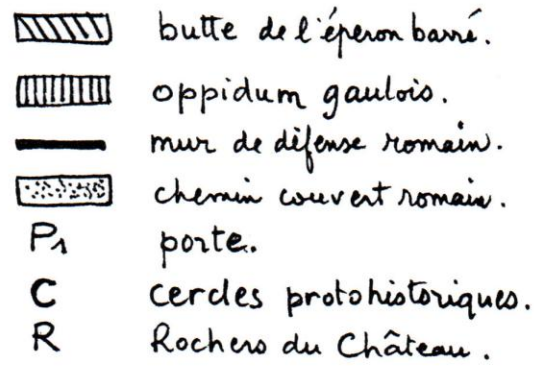 butte de l'éperon barré.
oppidum gaulois.
mur de défense romain.
chemin couvert romain.
P1 porte.
C cercles protohistoriques.
R Rochers du Château.